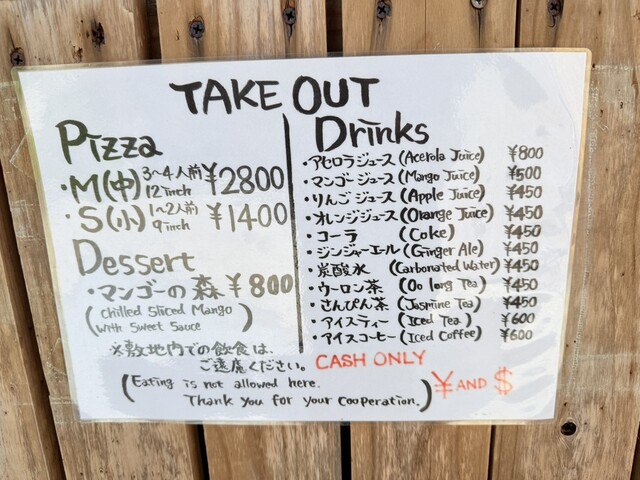 TAKE OUT
Pizza
・M(中) 3〜4人前 12inch ¥2800
・S(小) 1〜2人前 9inch ¥1400
Dessert
・マンゴーの森 ¥800
(Chilled Sliced Mango
With Sweet Sauce)
※敷地内での飲食は、
ご遠慮ください。
(Eating is not allowed here.
Thank you for your Cooperation.)
Drinks
・アセロラジュース (Acerola Juice) ¥800
・マンゴージュース (Mango Juice) ¥500
・りんごジュース (Apple Juice) ¥450
・オレンジジュース (Orange Juice) ¥450
・コーラ (Coke) ¥450
・ジンジャーエール (Ginger Ale) ¥450
・炭酸水 (Carbonated Water) ¥450
・ウーロン茶 (Oo long Tea) ¥450
・さんぴん茶 (Jasmine Tea) ¥450
・アイスティー (Iced Tea) ¥600
・アイスコーヒー (Iced Coffee) ¥600
CASH ONLY
¥ AND $